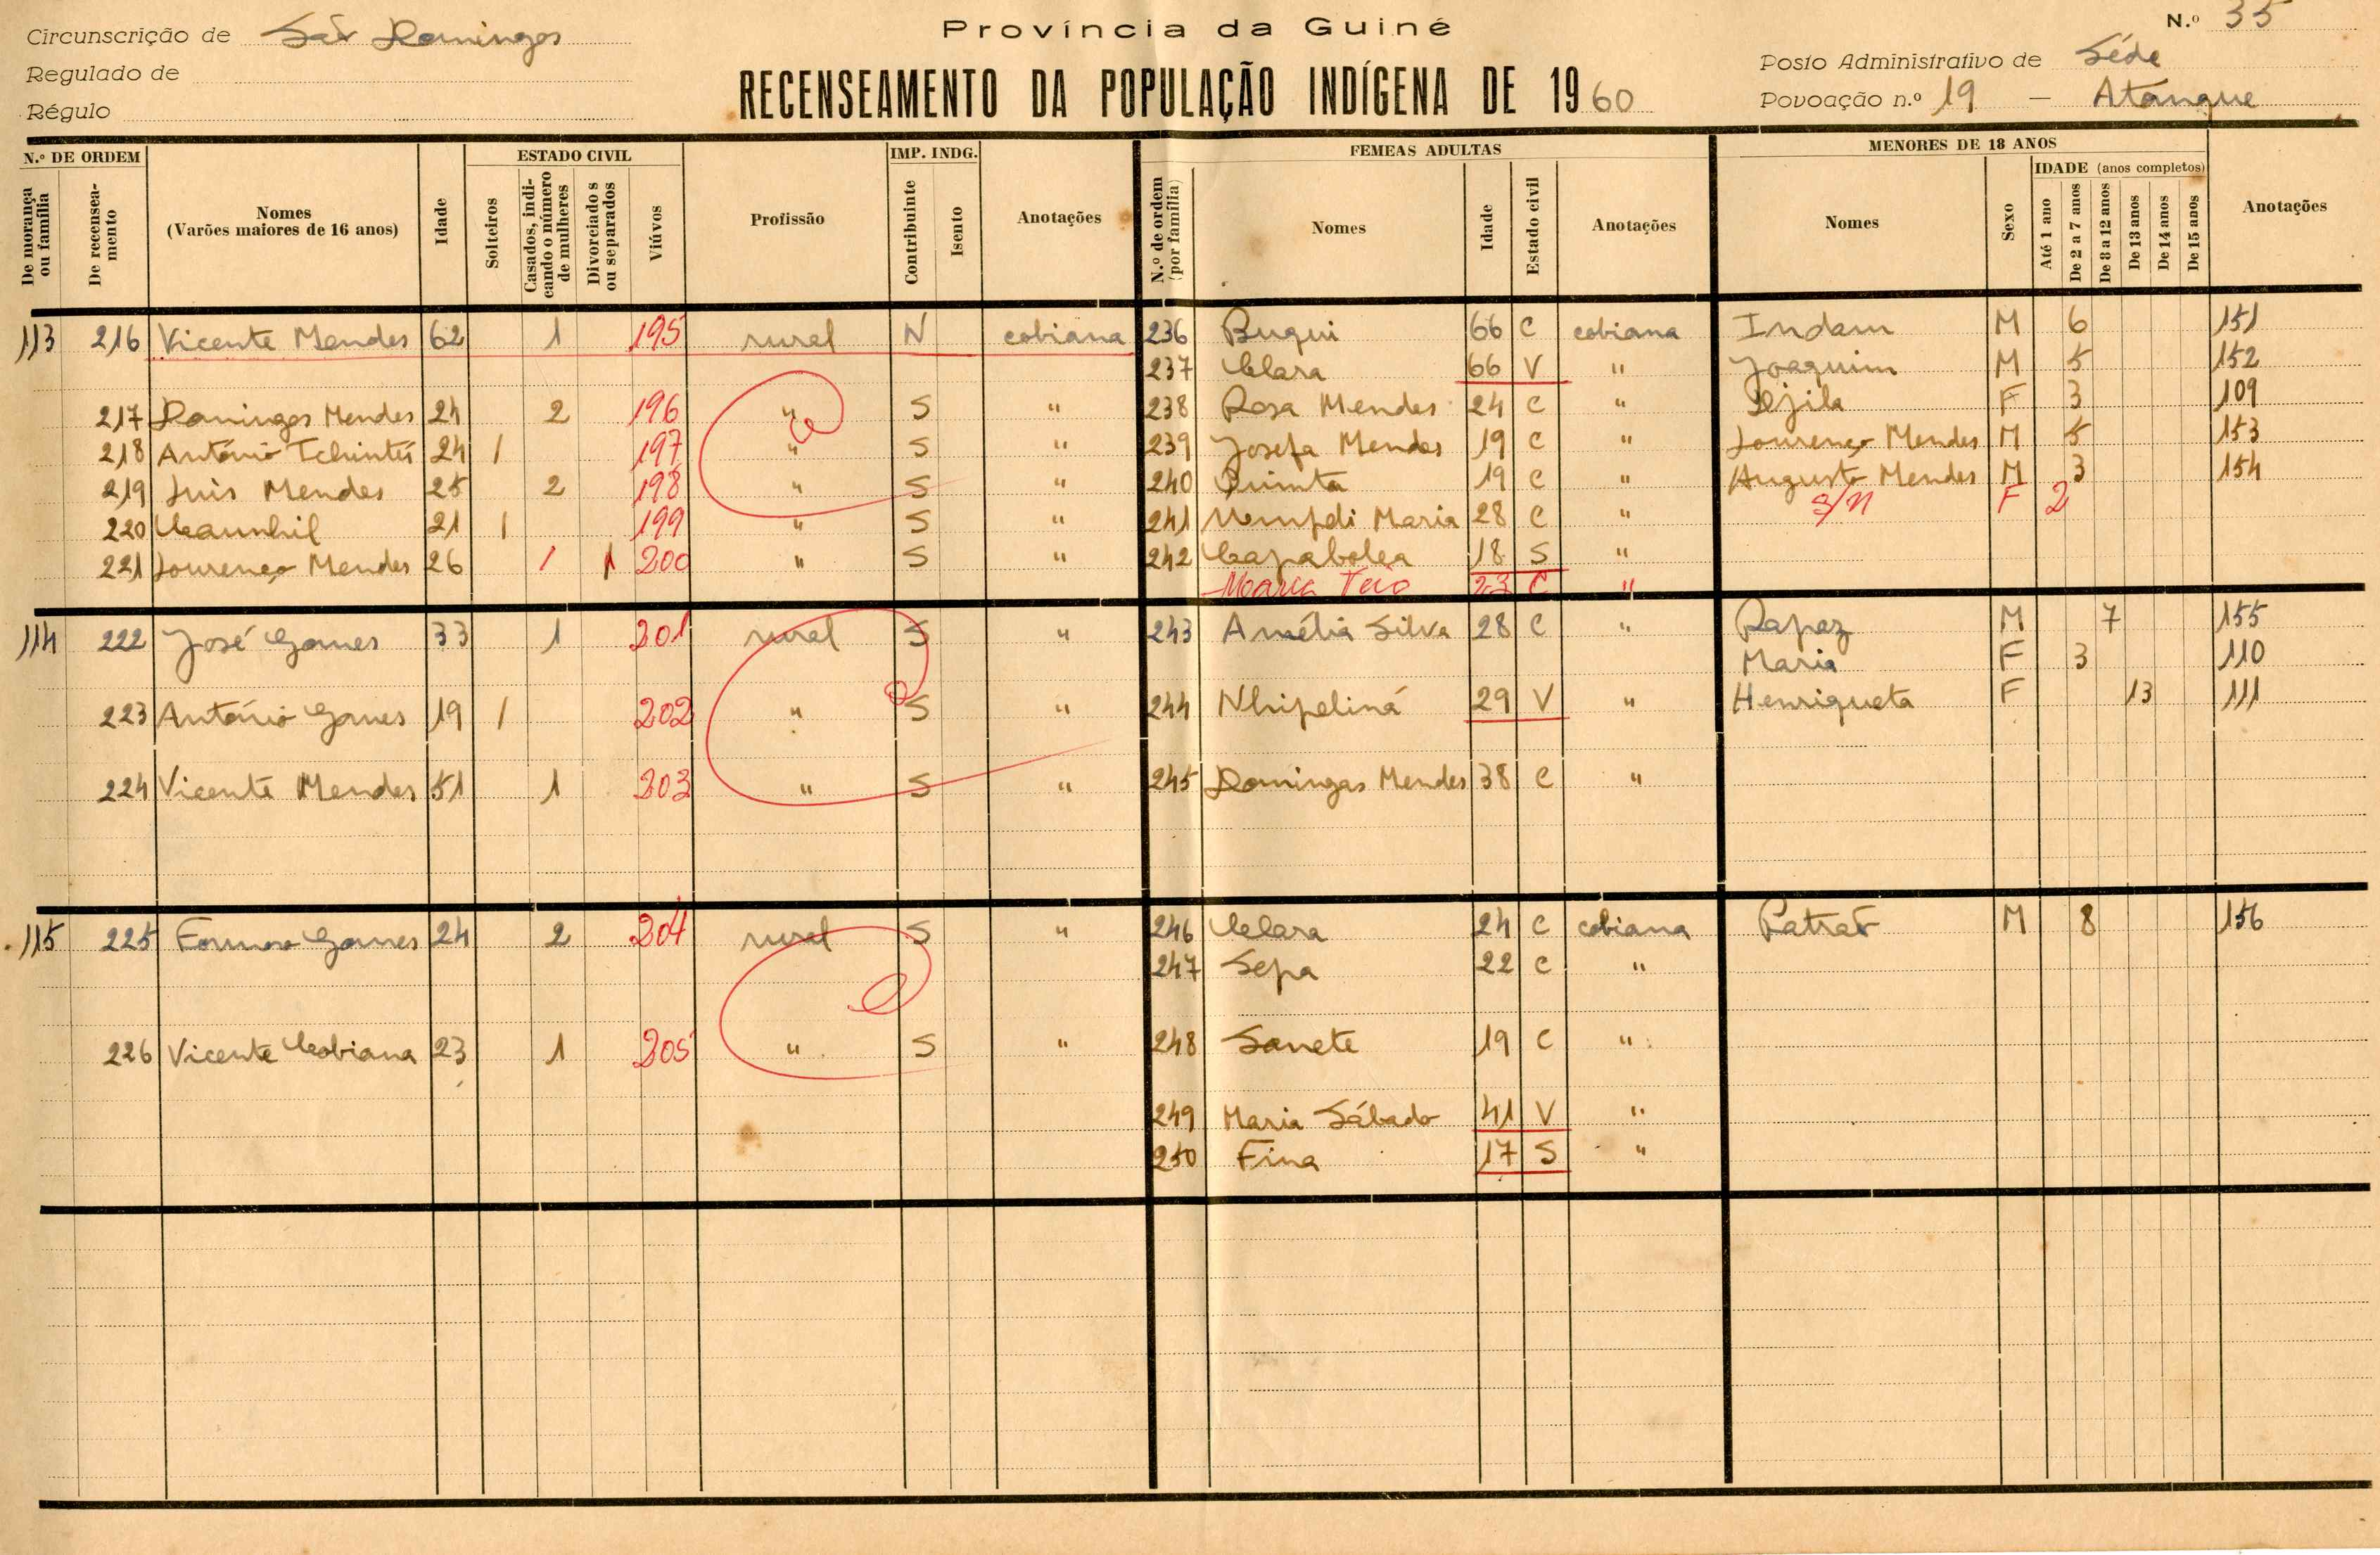 Província da Guiné
N.º 35
Circunscrição de São Domingos
Regulado de
Régulo
RECENSEAMENTO DA POPULAÇÃO INDÍGENA DE 1960
Posto Administrativo de Séde
Povoação n.º 19 — Atangue
N.º DE ORDEM
De morança ou família
De recenseamento
Nomes
(Varões maiores de 16 anos)
Idade
ESTADO CIVIL
Solteiros
Casados, indicando o número de mulheres
Divorciados ou separados
Viúvos
Profissão
IMP. INDG.
Contribuinte
Isento
Anotações
FEMEAS ADULTAS
N.º de ordem (por família)
Nomes
Idade
Estado civil
Anotações
MENORES DE 18 ANOS
Nomes
Sexo
IDADE (anos completos)
Até 1 ano
De 2 a 7 anos
De 8 a 12 anos
De 13 anos
De 14 anos
De 15 anos
Anotações
113 216 Vicente Mendes 62 1 195 rural N cobiana 236 Buqui 66 C cobiana Indam M 6 151
237 Clara 66 V " Joaquim M 5 152
217 Domingos Mendes 24 2 196 " S " 238 Rosa Mendes 24 C " F 3 109
218 António Tchintú 24 1 197 " S " 239 Josefa Mendes 19 C " Lourenço Mendes M 5 153
219 Luis Mendes 25 2 198 " S " 240 Quinta 19 C " Augusto Mendes M 3 154
220 Caunhil 21 1 199 " S " 241 Maria 28 C " S/N F 2
221 Lourenço Mendes 26 1 1 200 " S " 242 Capabolea 18 S "
Maria 23 C "
114 222 José Gomes 33 1 201 rural S " 243 Amélia Silva 28 C " Rapaz M 7 155
Maria F 3 110
223 António Gomes 19 1 202 " S " 244 Nhipeliná 29 V " Henriqueta F 13 111
224 Vicente Mendes 51 1 203 " S " 245 Domingas Mendes 38 C "
115 225 Gomes 24 2 204 rural S " 246 Clara 24 C cobiana Patrão M 8 156
247 Sepa 22 C "
226 Vicente Cobiana 23 1 205 " S " 248 Sanete 19 C "
249 Maria Sábado 41 V "
250 Fina 17 S "